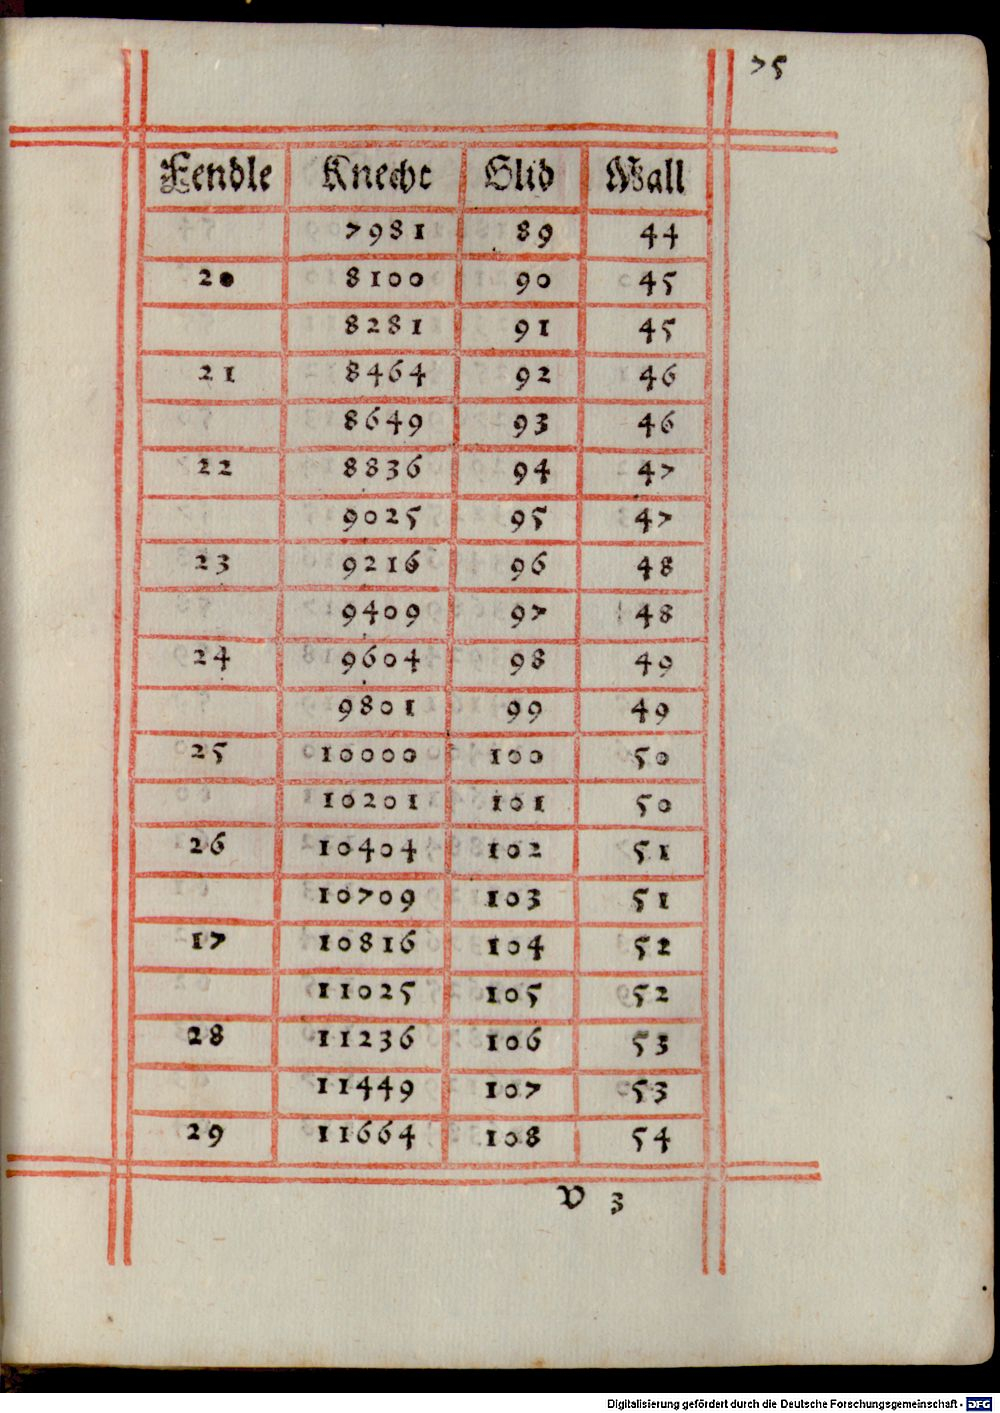 75
Fendle Knecht Glid Wall
7981 89 44
20 8100 90 45
8281 91 45
21 8464 92 46
8649 93 46
22 8836 94 47
9025 95 47
23 9216 96 48
9409 97 48
24 9604 98 49
9801 99 49
25 10000 100 50
10201 101 50
26 10404 102 51
10709 103 51
17 10816 104 52
11025 105 52
28 11236 106 53
11449 107 53
29 11664 108 54
V 3
Digitalisierung gefördert durch die Deutsche Forschungsgemeinschaft - DFG